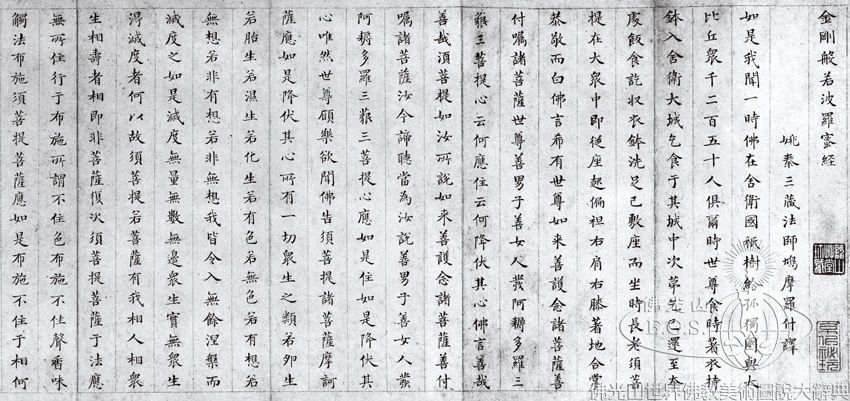 金剛般若波羅蜜經
姚秦三藏法師鳩摩羅什譯
如是我聞一時佛在舍衛國祇樹給孤獨園與大
比丘衆千二百五十人俱爾時世尊食時著衣持
鉢入舍衛大城乞食于其城中次第乞已還至本
處飯食訖収衣鉢洗足已敷座而坐時長老須菩
提在大衆中即從座起偏袒右肩右膝著地合掌
恭敬而白佛言希有世尊如來善護念諸菩薩善
付囑諸菩薩世尊善男子善女人發阿耨多羅三
藐三菩提心云何應住云何降伏其心佛言善哉
善哉須菩提如汝所說如來善護念諸菩薩善付
囑諸菩薩汝今諦聽當為汝說善男子善女人發
阿耨多羅三藐三菩提心應如是住如是降伏其
心唯然世尊願樂欲聞佛告須菩提諸菩薩摩訶
薩應如是降伏其心所有一切衆生之類若卵生
若胎生若濕生若化生若有色若無色若有想若
無想若非有想若非無想我皆令入無餘涅槃而
滅度之如是滅度無量無數無邊衆生實無衆生
得滅度者何以故須菩提若菩薩有我相人相衆
生相壽者相即非菩薩復次須菩提菩薩于法應
無所住行于布施所謂不住色布施不住聲香味
觸法布施須菩提菩薩應如是布施不住于相何
佛光山
F.G.S.
佛光山世界佛教美術圖說大辭典